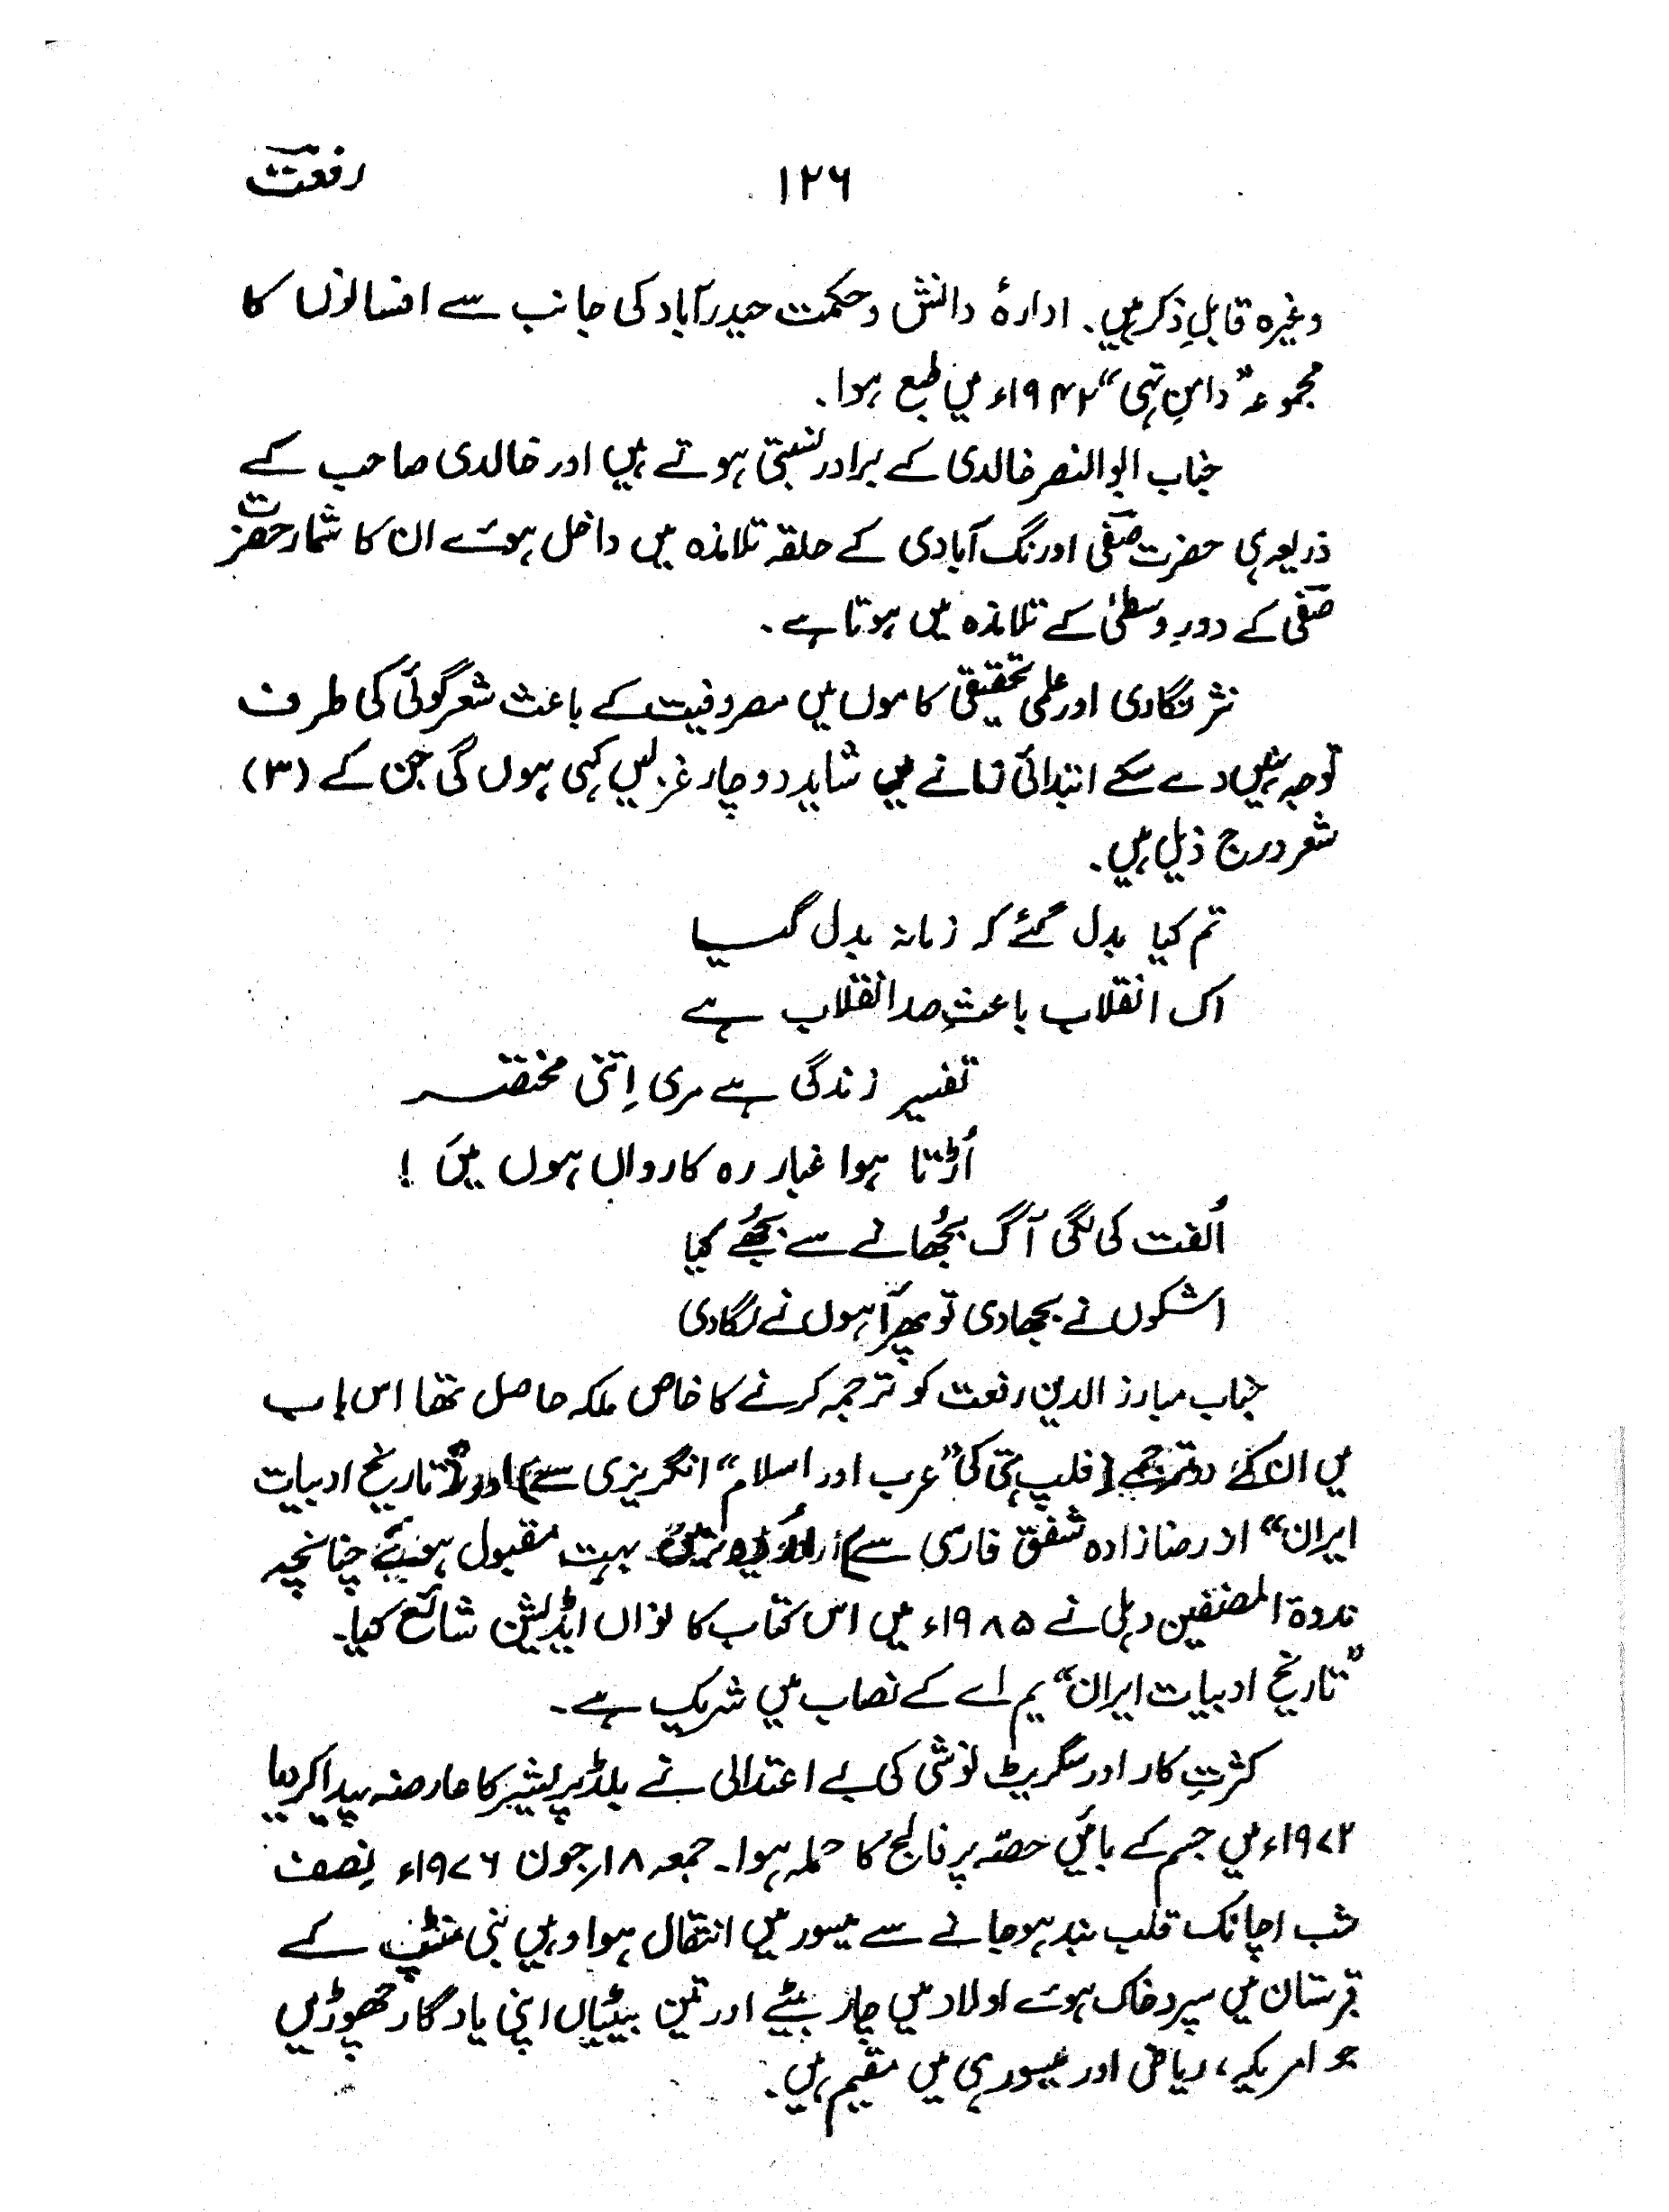 رفعتؔ
۱۲۶
وغیرہ قابلِ ذکر ہیں۔ ادارۂ دانش و حکمت حیدرآباد کی جانب سے افسانوں کا
مجموعہ ”دامنِ تہی“ ۱۹۴۲ء میں طبع ہوا۔
جناب ابوالنصر خالدی کے برادر نسبتی ہوتے ہیں اور خالدی صاحب کے
ذریعہ ہی حضرت صفیؔ اورنگ آبادی کے حلقہ تلامذہ میں داخل ہوئے ان کا شمار حضرت
صفیؔ کے دورِ وسطیٰ کے تلامذہ میں ہوتا ہے۔
نثر نگاری اور علمی تحقیقی کاموں میں مصروفیت کے باعث شعر گوئی کی طرف
توجہ نہیں دے سکے ابتدائی زمانے میں شاید دو چار غزلیں کہی ہوں گی جن کے (۳)
شعر درج ذیل ہیں۔
تم کیا بدل گئے کہ زمانہ بدل گیا
اک انقلاب باعثِ صد انقلاب ہے
تفسیر زندگی ہے مری اِتنی مختصر
اُڑتا ہوا غبار رہ کارواں ہوں میں !
اُلفت کی لگی آگ بجُھانے سے بجُھے کیا
اشکوں نے بجھادی تو پھر آہوں نے لگادی
جناب مبارز الدین رفعت کو ترجمہ کرنے کا خاص ملکہ حاصل تھا اس باب
میں ان کے دو ترجمے (فلپ ہتی کی ”عرب اور اسلام“ انگریزی سے) اور (”تاریخ ادبیات
ایران“ از رضا زادہ شفق فارسی سے) اردو میں بہت مقبول ہوئے چنانچہ
ندوۃ المصنفین دہلی نے ۱۹۸۵ء میں اس کتاب کا نواں ایڈیشن شائع کیا۔
”تاریخ ادبیات ایران“ یم اے کے نصاب میں شریک ہے۔
کثرتِ کار اور سگریٹ نوشی کی بے اعتدالی نے بلڈ پریشر کا عارضہ پیدا کردیا
۱۹۷۲ء میں جسم کے بائیں حصّہ پر فالج کا حملہ ہوا۔ جمعہ ۱۸؍جون ۱۹۷۶ء نِصف
شب اچانک قلب بند ہوجانے سے میسور میں انتقال ہوا وہیں بنی منٹپ کے
قبرستان میں سپرد خاک ہوئے اولاد میں چار بیٹے اور تین بیٹیاں اپنی یادگار چھوڑیں
جو امریکہ، ریاض اور میسور ہی میں مقیم ہیں۔